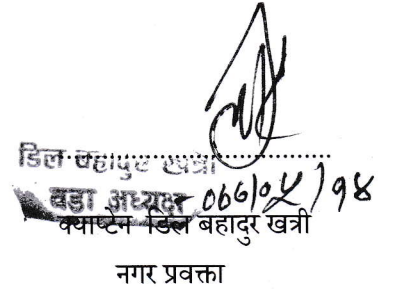 डिल बहादुर खत्री
वडा अध्यक्ष
क्याप्टेन डिल बहादुर खत्री
नगर प्रवक्ता